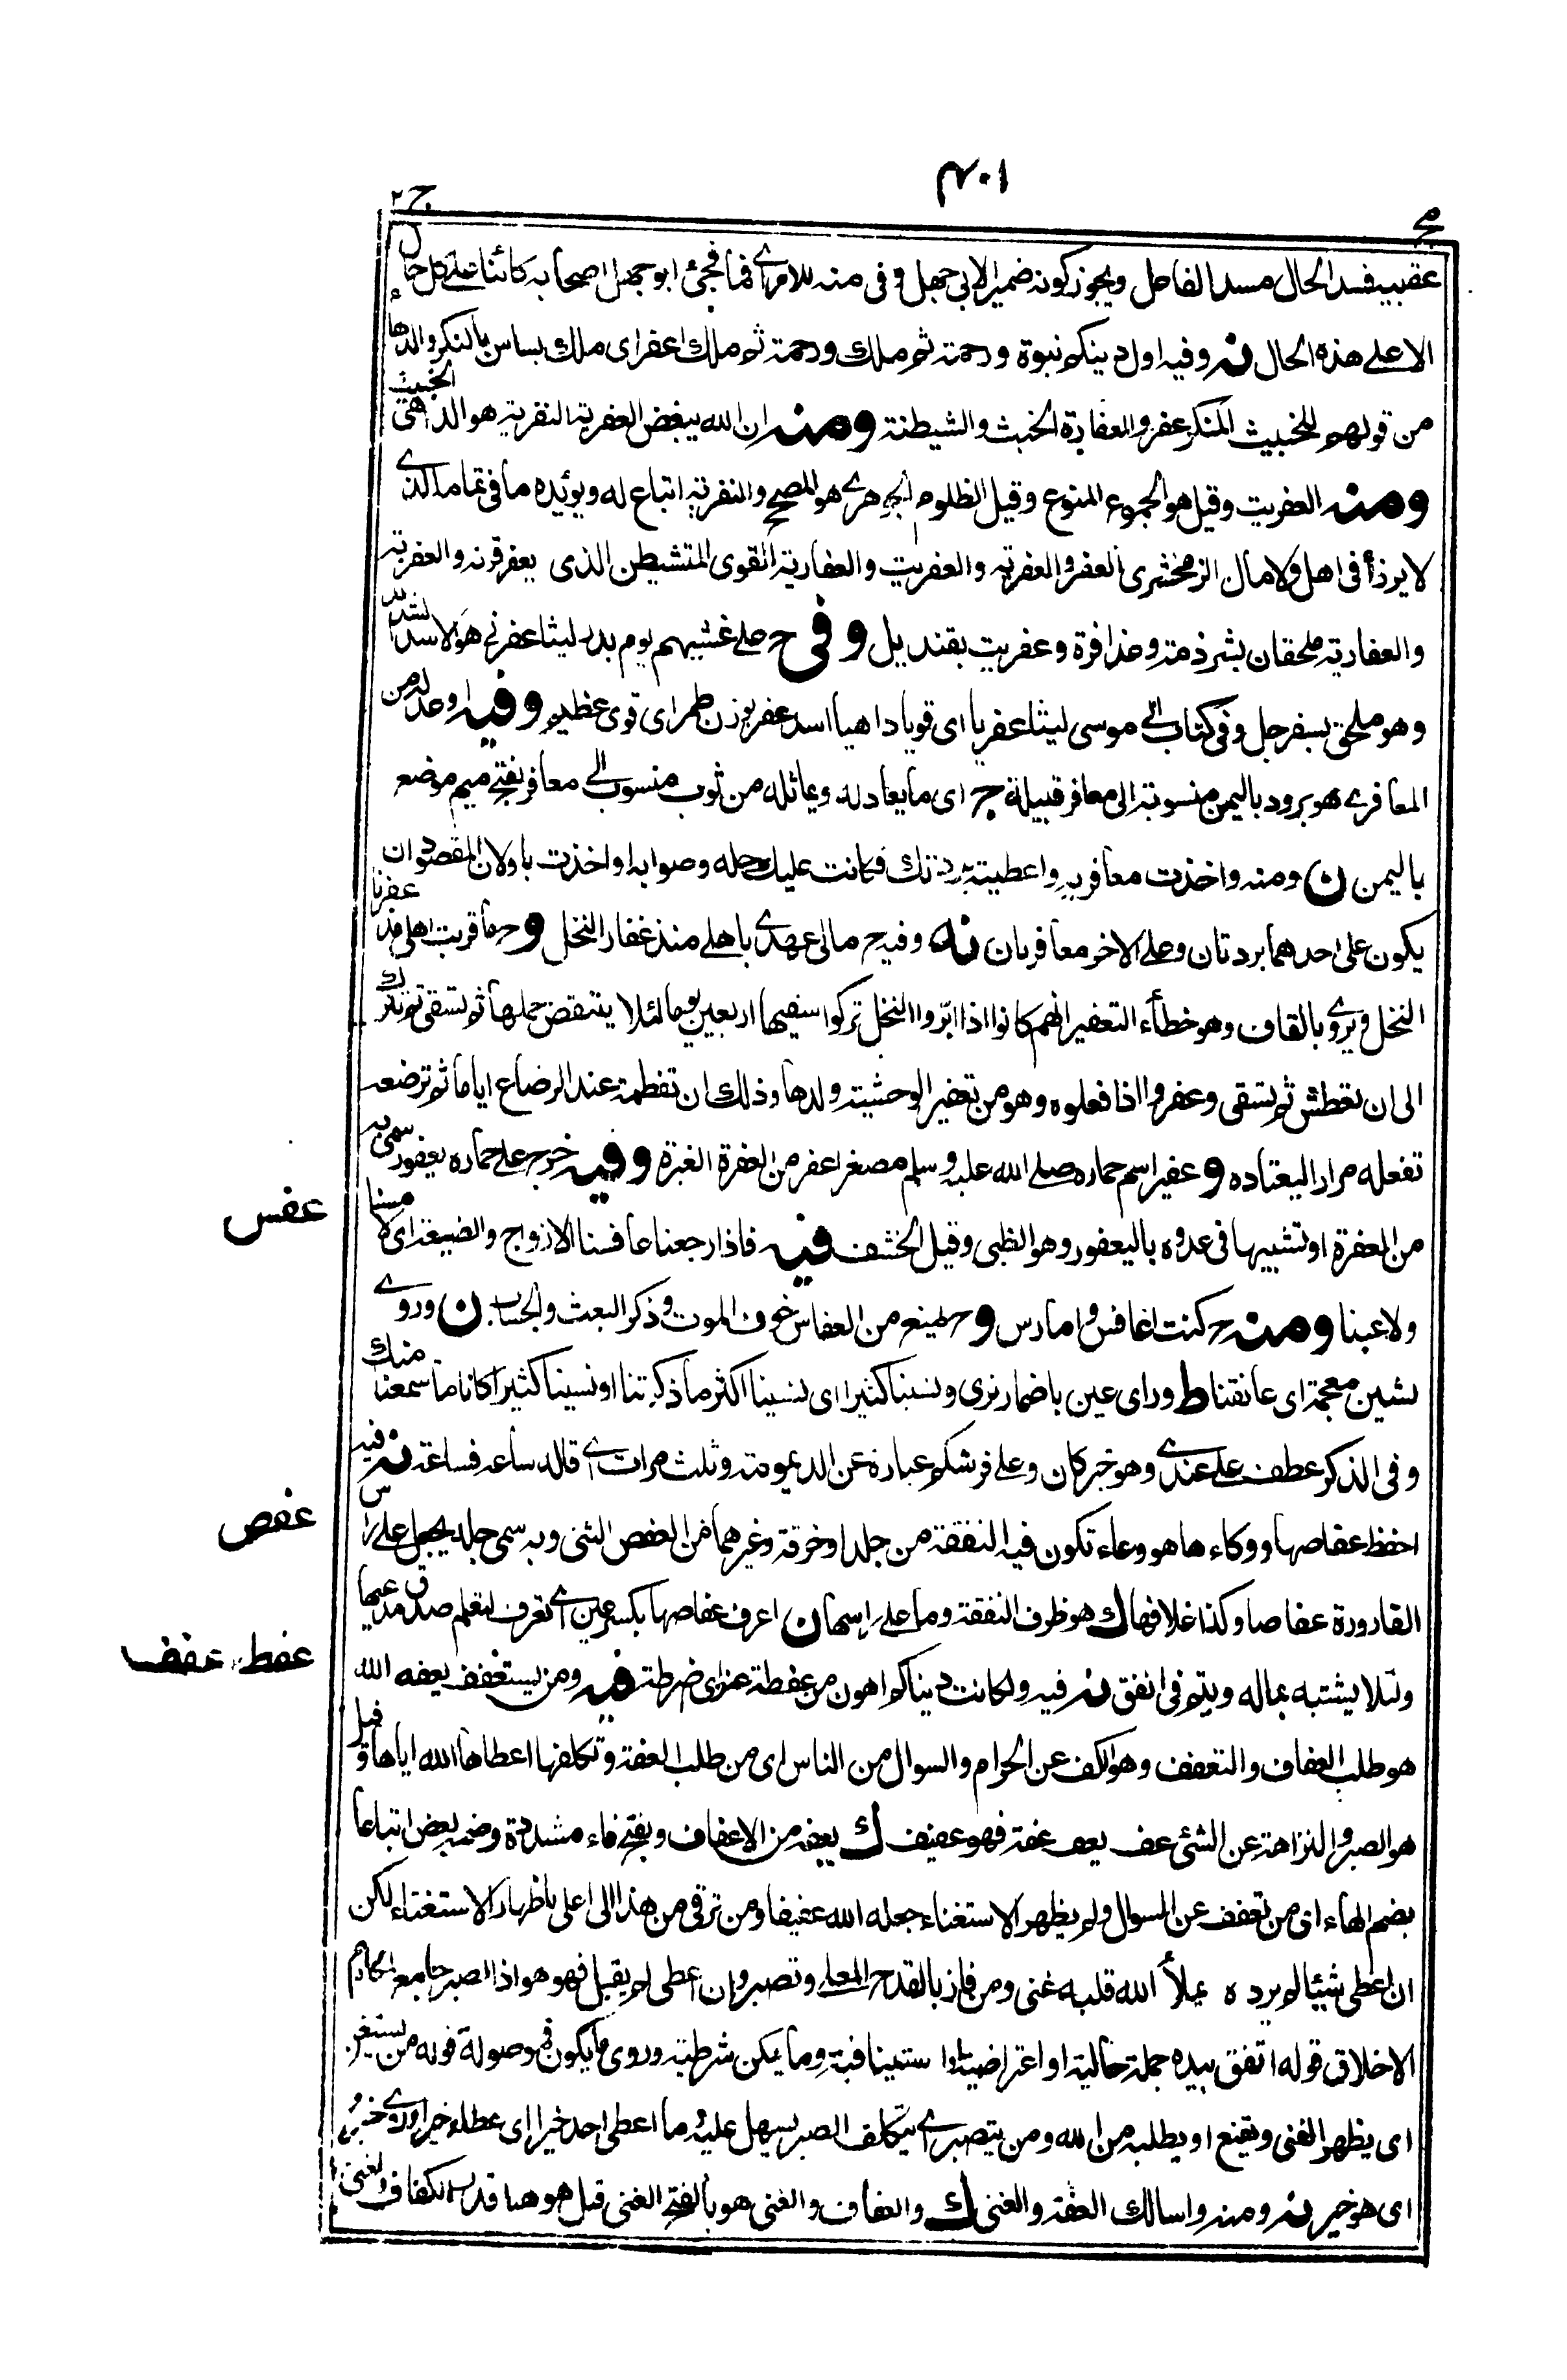 ٤٠١
مج
ج ٢
عقبيه فسد الحال مسد الفاعل ويجوز كونه ضمير الابي جهل وفي منه للامر اي فما فجئ ابو جهل اصحابه كائنا على كل حال
الا على هذه الحال نه وفيه اول دينكم نبوة ورحمة ثم ملك ورحمة ثم ملك اعفر اي ملك بساس بالنكر والدهاء
من قولهم للخبيث المنكر عفر والعفارة الخبث والشيطنة ومنه ان الله يبغض العفرية النفرية هو الداهي الخبيث
ومنه العفريت وقيل هو الجموع المنوع وقيل الظلوم الجوهري هو المصحح والنفرية اتباع له ويؤيده ما في تمامه الذي
لا يرزأ في اهل ولا مال الزمخشري العفر والعفرية والعفريت والعفارية القوي المتشيطن الذي يعفر قرنه والعفرية
والعفارية ملحقان بشرذمة وعذافرة وعفريت بقنديل وفي ح علي غشيهم يوم بدر ليثا عفرني هو الاسد الشديد
وهو ملحق بسفرجل وفي كتاب ابي موسى ليثا عفريا اي قويا داهيا اسد عفر بوزن طمر اي قوي عظيم وفيه او عدله من
المعافري هو برود باليمن منسوبة الى معافر قبيلة ج اي ما يعادله ويماثله من ثوب منسوب الى معافر بفتح ميم موضع
باليمن ن ومنه واخذت معافريه واعطيته بردتك فكانت عليك حله وصوابه او اخذت باو لان المقصود ان
يكون على احدهما بردتان وعلى الاخر معافريان نه وفيه ح مالي عهد باهلي منذ عفار النخل و ح ما قربت اهلي مذ عفرنا
النخل ويروى بالقاف وهو خطأ التعفير انهم كانوا اذا ابروا النخل تركوا سقيها اربعين يوما لئلا ينتقض حملها ثم تسقى ثم تترك
الى ان تعطش ثم تسقى وعفروا اذا فعلوه وهو من تعفير الوحشية ولدها وذلك ان تفطمه عند الرضاع اياما ثم ترضعه
تفعله مرارا ليعتاده و عفير اسم حماره صلى الله عليه وسلم مصغر اعفر من العفرة الغبرة وفيه خرج على حماره يعفور سمي به
من العفرة او تشبيها في عدوه باليعفور وهو الظبي وقيل الخشف فيه فاذا رجعنا عافسنا الازواج والضيعة اي لامسنا
ولاعبنا ومنه ح كنت اعافس وامارس و ح يمنع من العفاس خوف الموت وذكر البعث والحساب ن وروي
بشين معجمة اي عانقنا ط وراي عين باضمار نرى ونسينا كثيرا اي نسينا اكثر ما ذكرتنا او نسينا كثيرا كانا ما سمعنا منك
وفي الذكر عطف على عندي وهو خبر كان وعلى فرشكم عبارة عن الديمومة وثلث مرات اي قاله ساعه فساعة نه فيه
احفظ عفاصها ووكاءها هو وعاء تكون فيه النفقة من جلد او خرقة وغيرهما من العفص الثني وبه سمي جلد يجعل على راس
القارورة عفاصا وكذا غلافها ك هو ظرف النفقة وما على راسها ن اعرف عفاصها بكسر عين اي تعرف لتعلم صدق مدعيها
ولئلا يشتبه بماله ويتم في انفق نه فيه ولكانت دنياكم اهون من عفطة عنز اي ضرطة فيه ومن يستعفف يعفه الله
هو طلب العفاف والتعفف وهو الكف عن الحرام والسوال من الناس اي من طلب العفة وتكلفها اعطاها الله اياها وقيل
هو الصبر والنزاهة عن الشئ عف يعف عفة فهو عفيف ك يعفه من الاعفاف وبفتح فاء مشددة وضمه بعض اتباعا
بضم الهاء اي من تعفف عن السوال ولم يظهر الاستغناء جعله الله عفيفا ومن ترقى من هذا الى اعلى باظهار الاستغناء لكن
ان اعطي شيئا لم يرده يملأ الله قلبه غنى ومن فاز بالقدح المعلى وتصبر وان اعطي لم يقبل فهو هو اذ الصبر جامع لمكارم
الاخلاق قوله انفق بيده جملة حالية او اعتراضية او استينافية وما يكن شرطية وروي ما يكون فموصولة قوله من يستغن
اي يظهر الغنى ويقنع او يطلبه من الله ومن يتصبر اي يتكلف الصبر يسهل عليه وما اعطي احد خيرا اي عطاء خيرا وروي خير
اي هو خير نه ومنه واسالك العفة والغنى ك والعفاف والغنى هو بالفتح الغنى قيل هو هنا قدر الكفاف والغنى
عفس
عفص
عفط، عفف